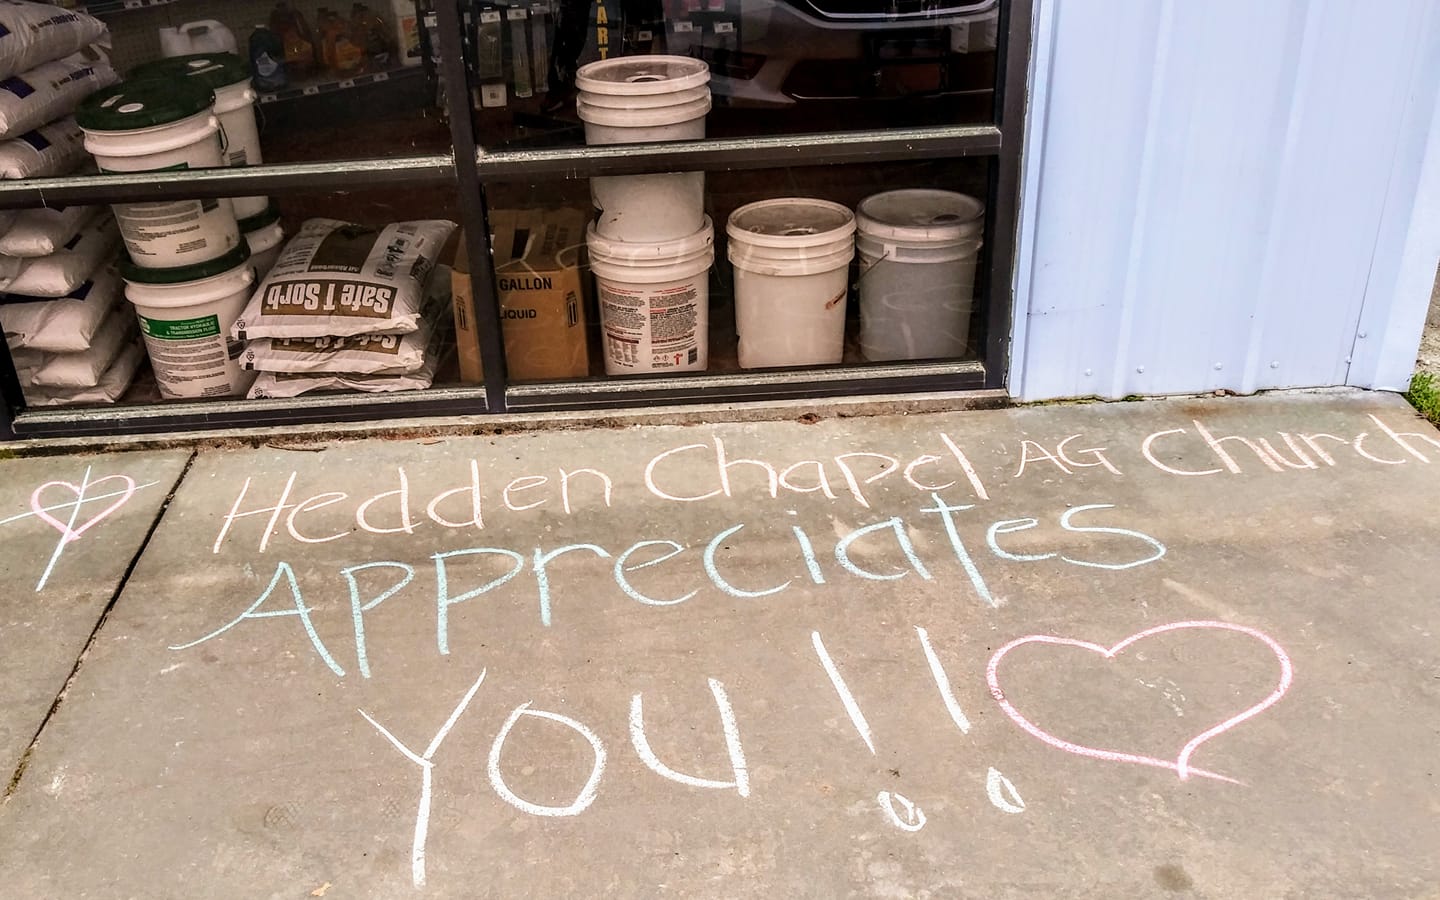 ART
GALLON
LIQUID
Safe T Sorb
TRACTOR HYDRAULIC
& TRANSMISSION FLUID
Hedden Chapel AG Church
Appreciates
You!!